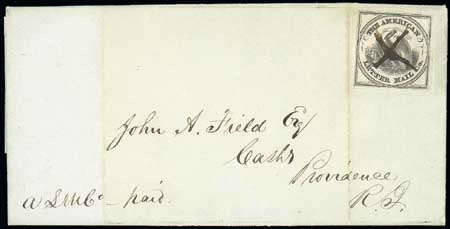 THE AMERICAN
LETTER MAIL Co.
John A. Field Esq
Cashr
Providence
R.I.
A L M Co - paid.